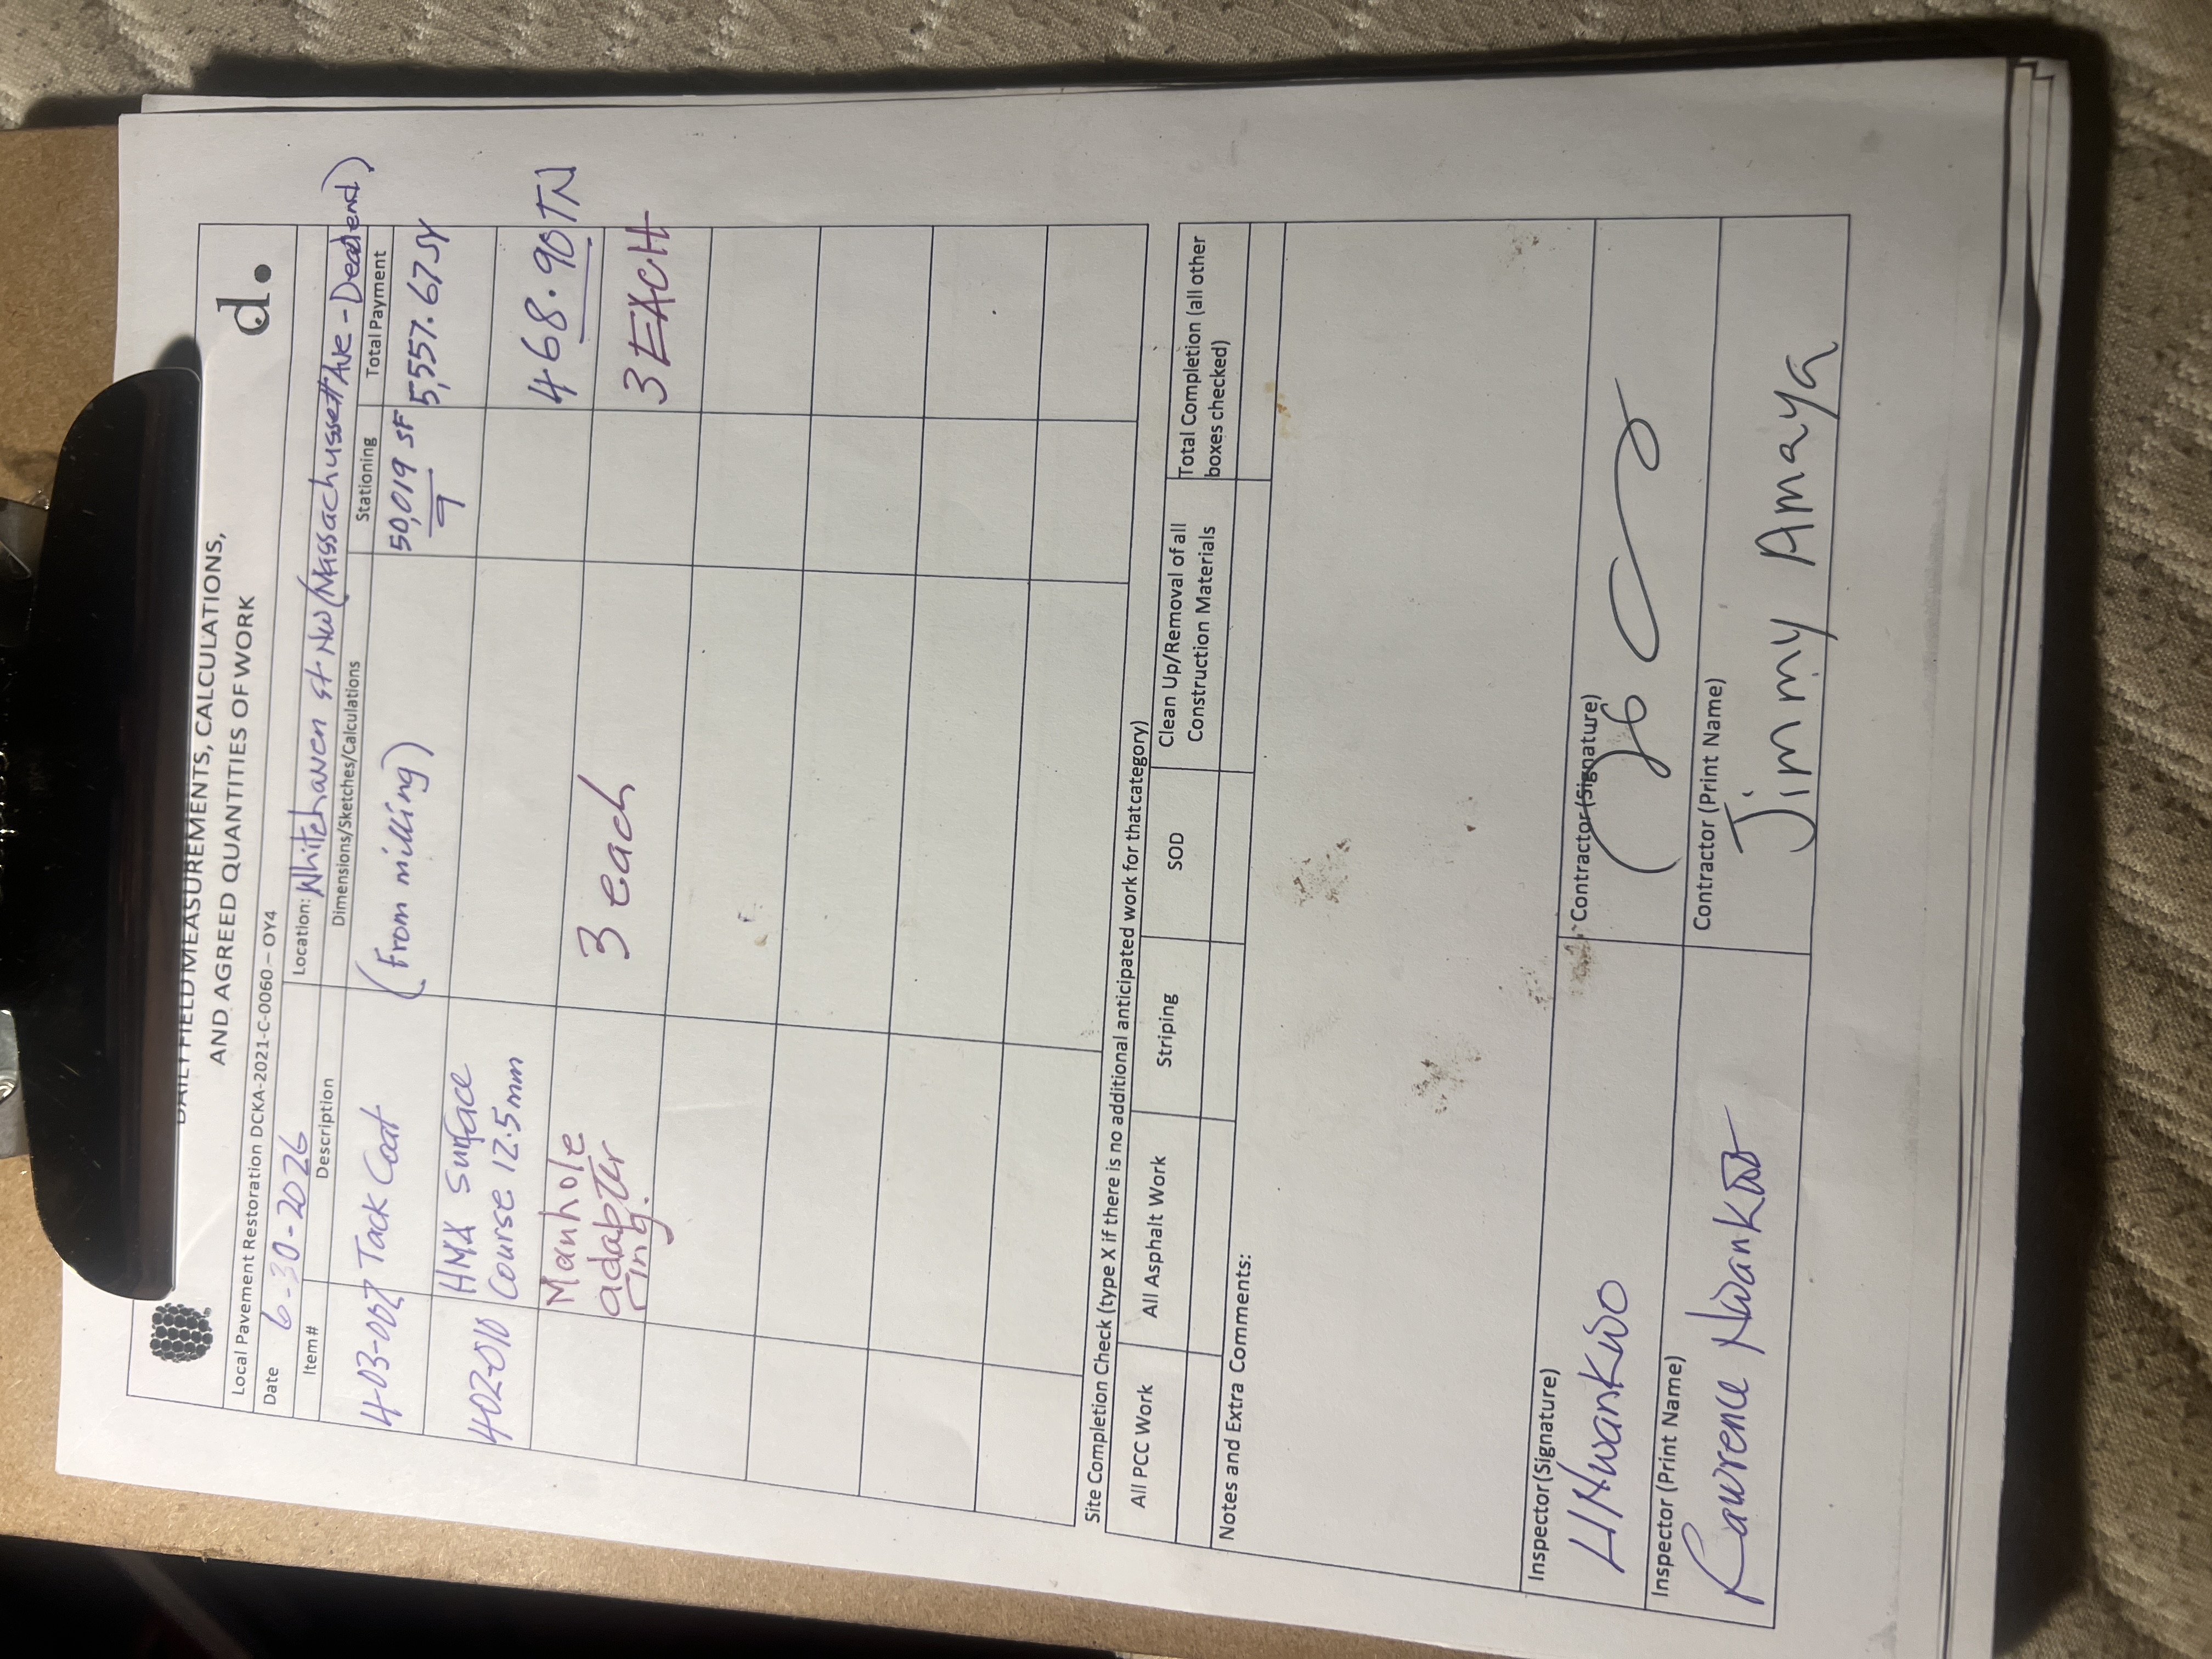 DAILY FIELD MEASUREMENTS, CALCULATIONS,
AND AGREED QUANTITIES OF WORK
d.
Local Pavement Restoration DCKA-2021-C-0060 – OY4
Date 6-30-2026 Location: Whitehaven St NW (Massachussett Ave - Dead end)
Item# Description Dimensions/Sketches/Calculations Stationing Total Payment
403-002 Tack Coat (From milling) 50,019 SF 5,557.67 SY
9
402-010 HMA Surface 468.90 TN
Course 12.5mm
Manhole 3 each 3 EACH
adapter
ring.
Site Completion Check (type X if there is no additional anticipated work for thatcategory)
All PCC Work All Asphalt Work Striping SOD Clean Up/Removal of all Total Completion (all other
Construction Materials boxes checked)
Notes and Extra Comments:
Inspector (Signature) Contractor (Signature)
LINwankwo
Inspector (Print Name) Contractor (Print Name)
Lawrence Nwankwo Jimmy Amaya